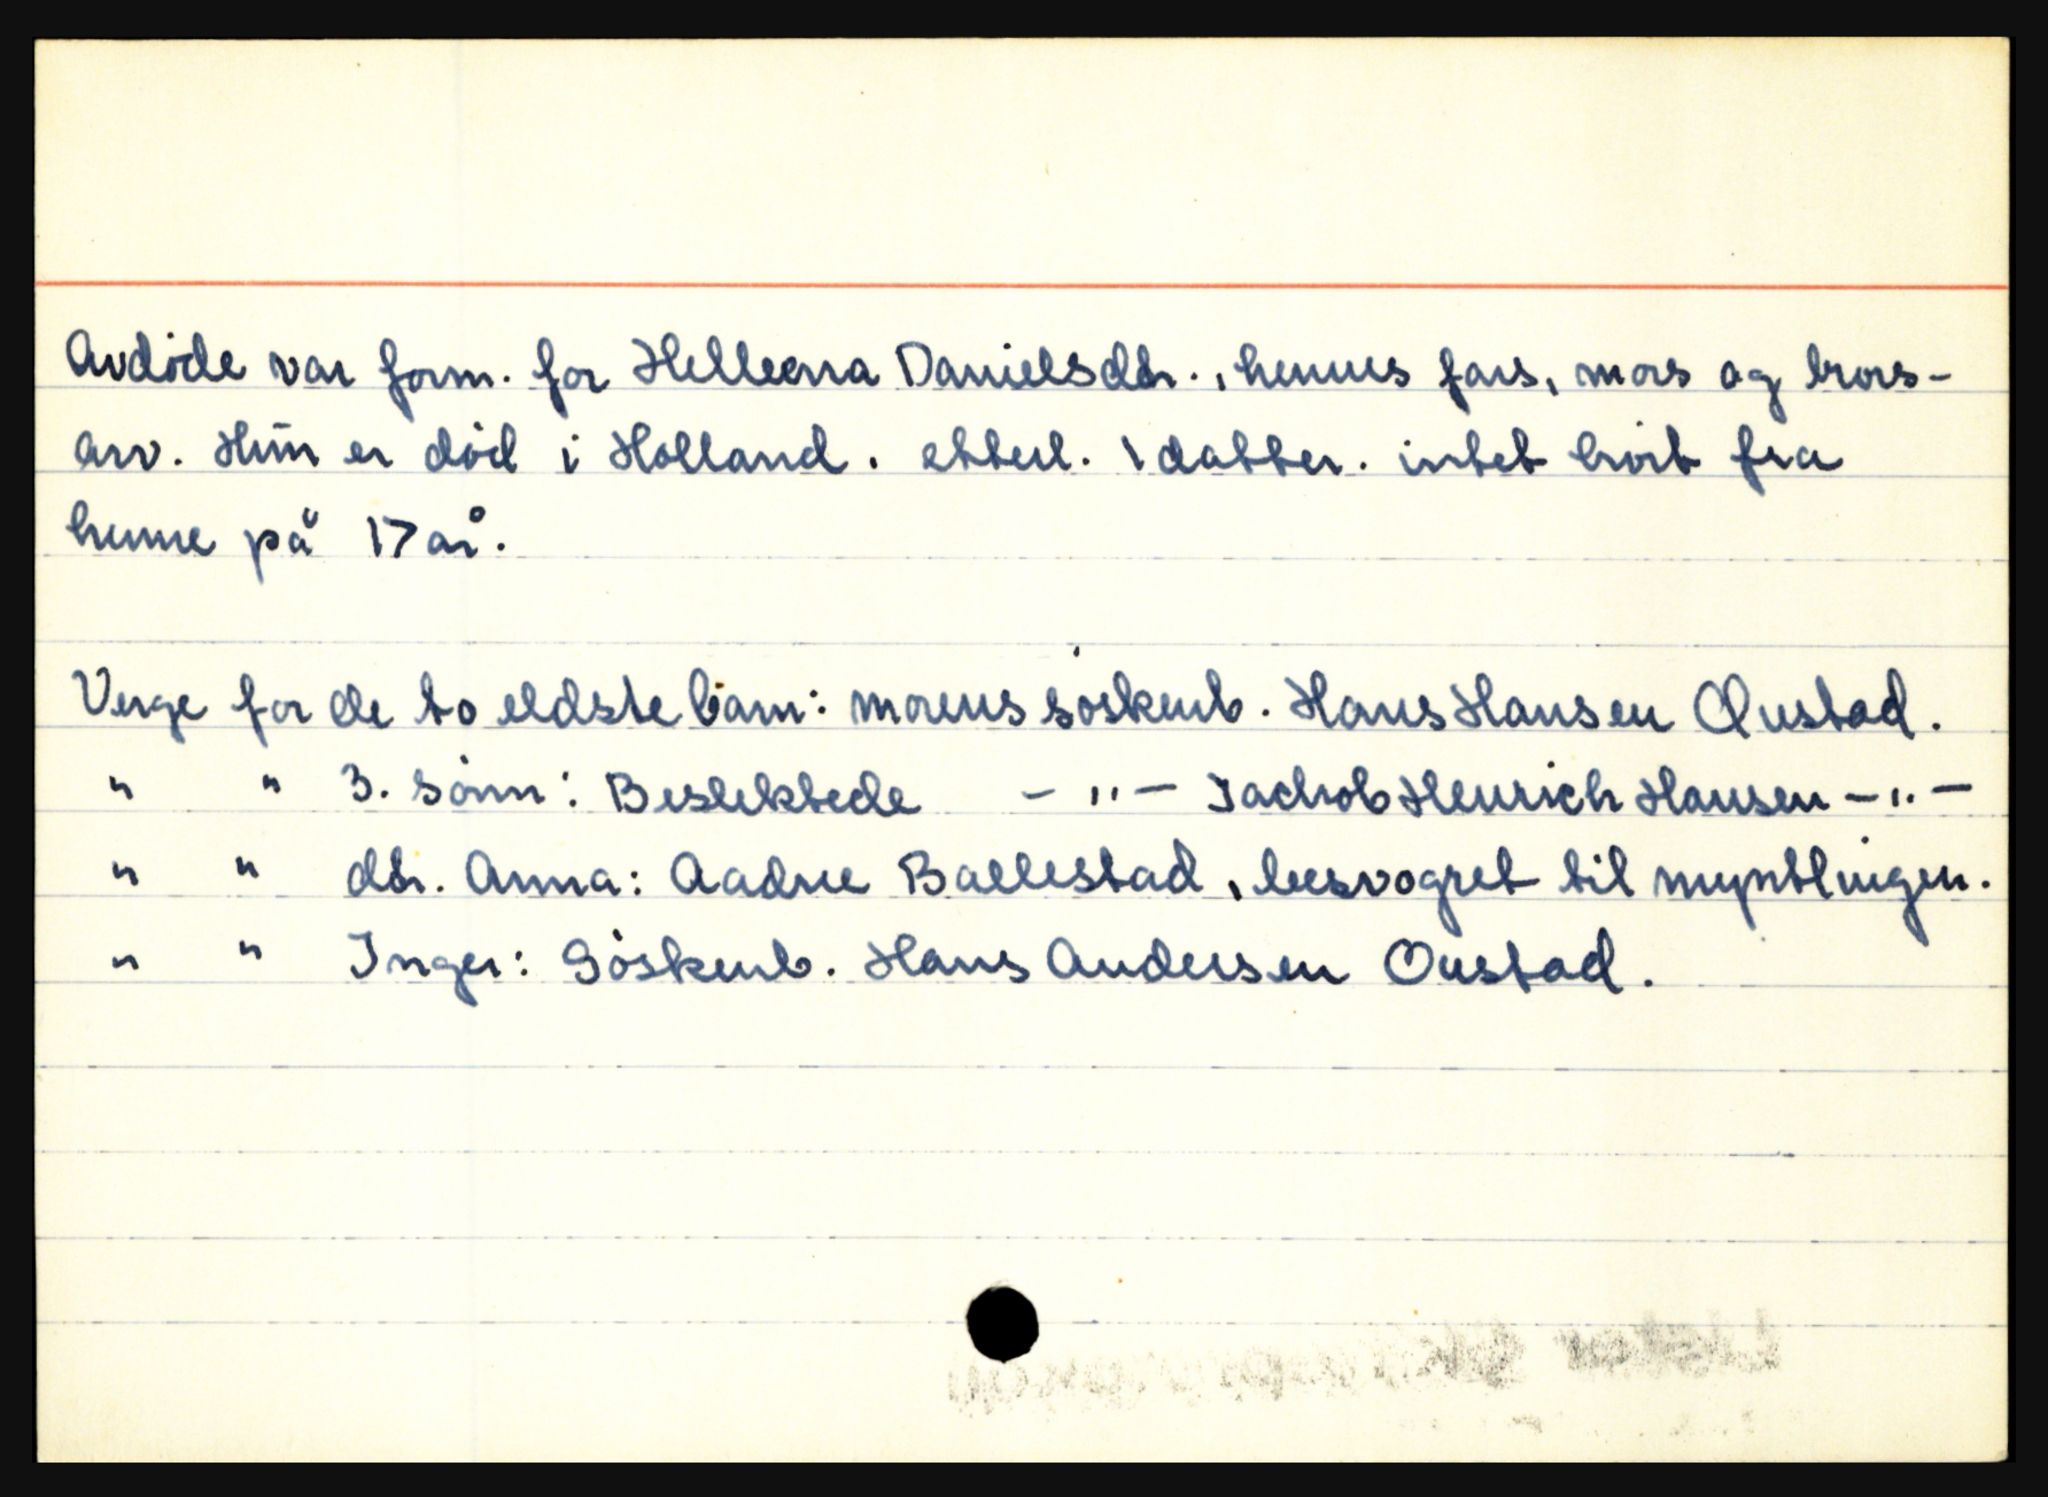 Avdöde var form. for Helleena Danielsdtr., hennes fars, mors og brors-
arv. Hun er död i Holland. etterl. 1 datter. intet hört fra
henne på 17 år.
Verge for de to eldste barn: morens söskenb. Hans Hansen Oustad.
" " 3. sönn: Beslektede - " - Jachob Henrich Hansen - " -
" " dtr. Anna: Aadne Ballestad, besvogret til myntlingen.
" " Inger: Söskenb. Hans Andersen Oustad.